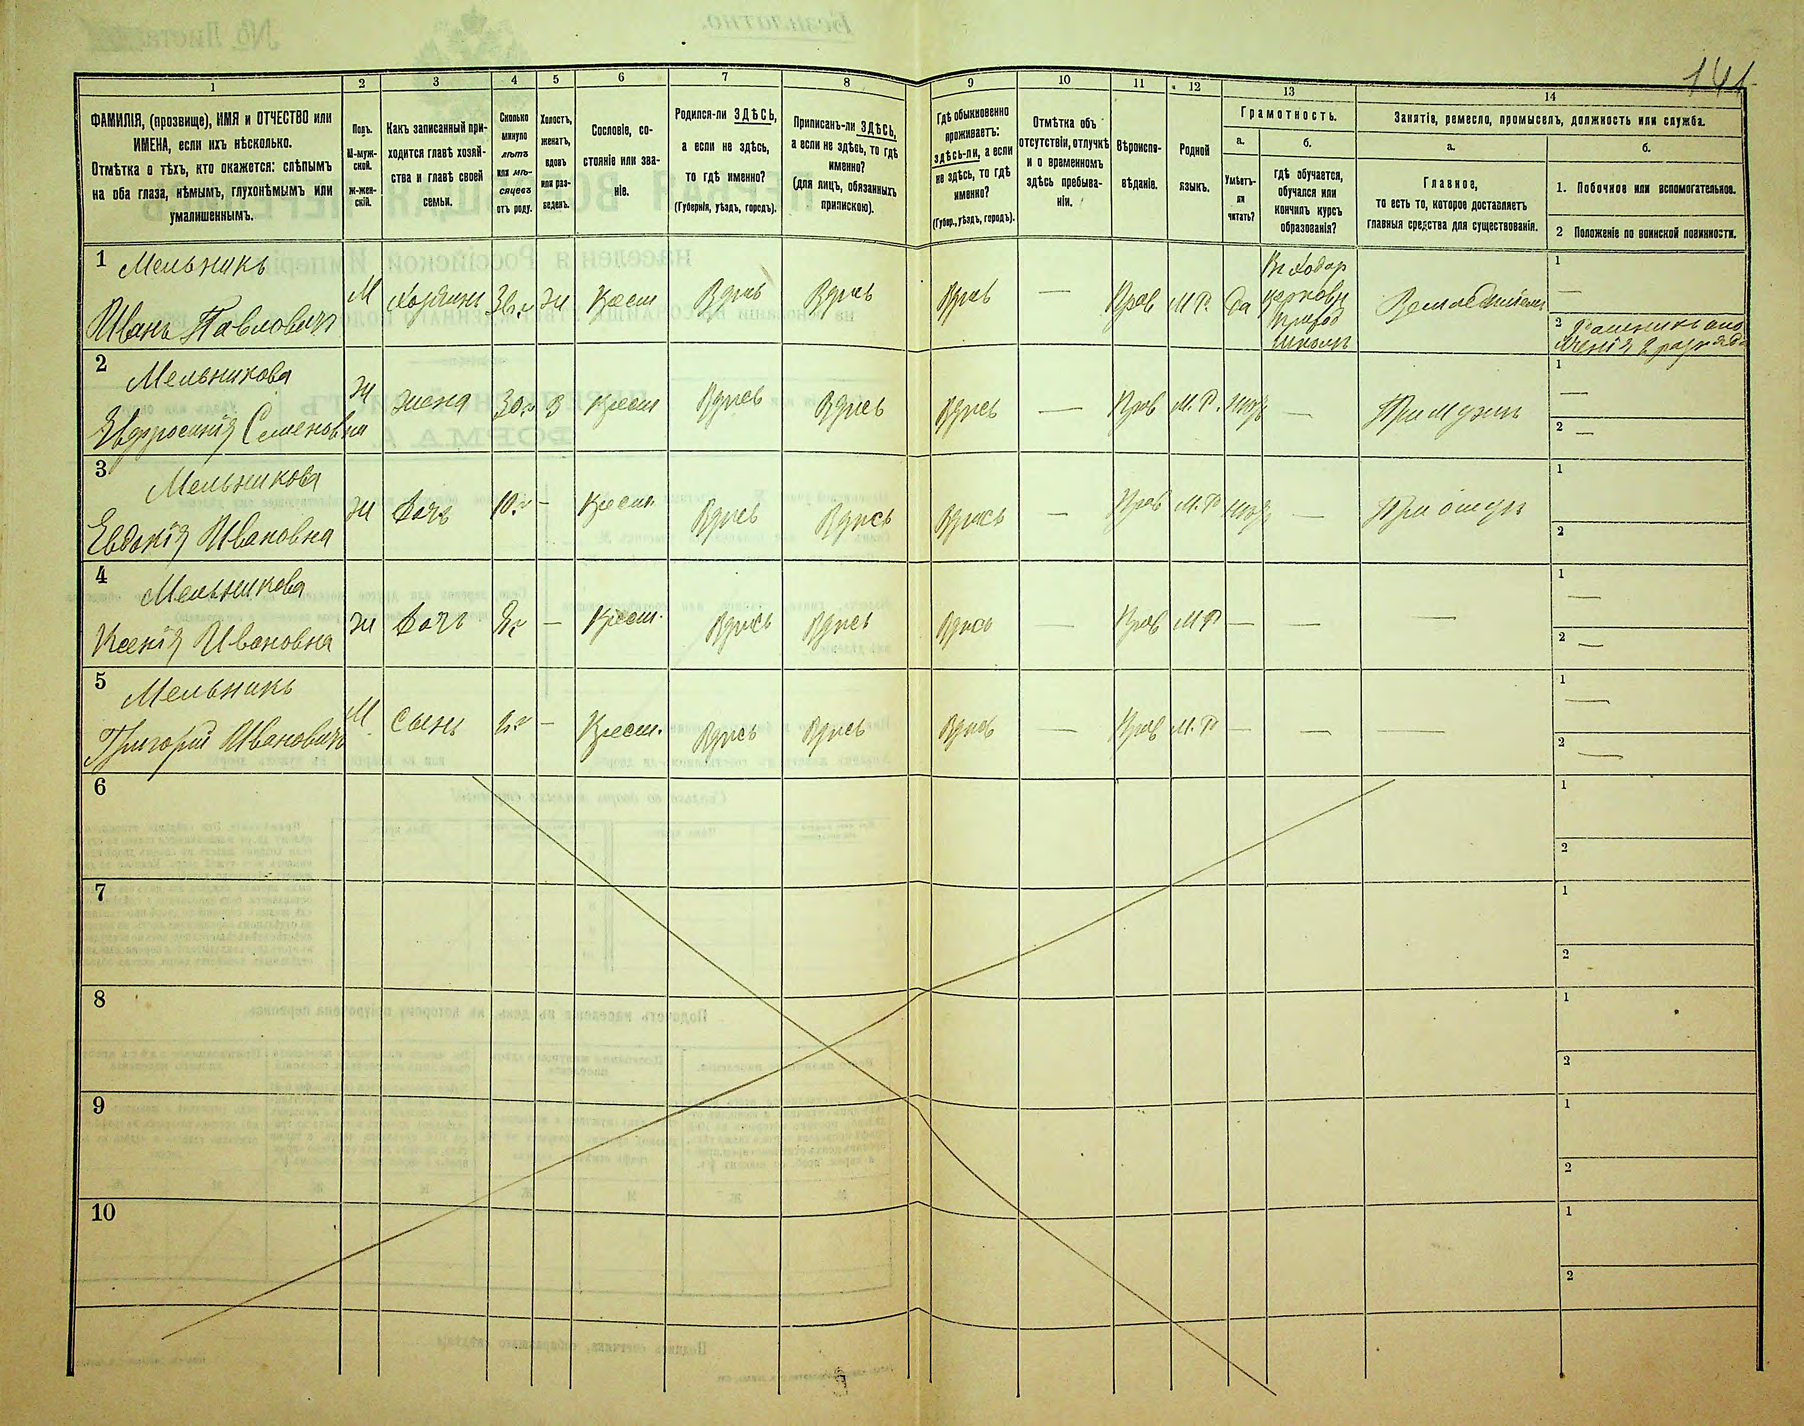 141
1 2 3 4 5 6 7 8 9 10 11 12 13 14
ФАМИЛІЯ, (прозвище), ИМЯ и ОТЧЕСТВО или
ИМЕНА, если ихъ нѣсколько.
Отмѣтка о тѣхъ, кто окажется: слѣпымъ
на оба глаза, нѣмымъ, глухонѣмымъ или
умалишеннымъ.
Полъ.
М-муж-
ской.
Ж-жен-
скій.
Какъ записанный при-
ходится главѣ хозяй-
ства и главѣ своей
семьи.
Сколько
минуло
лѣтъ
или мѣ-
сяцевъ
отъ роду.
Холостъ,
женатъ,
вдовъ
или раз-
веденъ.
Сословіе, со-
стояніе или зва-
ніе.
Родился-ли ЗДѢСЬ,
а если не здѣсь,
то гдѣ именно?
(Губернія, уѣздъ, городъ).
Приписанъ-ли ЗДѢСЬ,
а если не здѣсь, то гдѣ
именно?
(для лицъ, обязанныхъ
припискою).
Гдѣ обыкновенно
проживаетъ:
здѣсь-ли, а если
не здѣсь, то гдѣ
именно?
(Губер., уѣздъ, городъ).
Отмѣтка объ
отсутствіи, отлучкѣ
и о временномъ
здѣсь пребыва-
ніи.
Вѣроиспо-
вѣданіе.
Родной
языкъ.
Грамотность.
а.
Умѣетъ-
ли
читать?
б.
гдѣ обучается,
обучался или
кончилъ курсъ
образованія?
Занятіе, ремесло, промыселъ, должность или служба.
а.
Главное,
то есть то, которое доставляетъ
главныя средства для существованія.
б.
1. Побочное или вспомогательное.
2 Положеніе по воинской повинности.
1 Мельникъ
Иванъ Павловичъ
М Хозяинъ ж Крест Здѣсь Здѣсь Здѣсь — Прав М.Р. Да
церковн
приход
школѣ
Земледѣлецъ
1 —
2 Ратникъ опол
ченія 2 разряда
2 Мельникова
Евфросинія Семеновна
Ж жена 30 г З Крест Здѣсь Здѣсь Здѣсь — Прав М.Р. — При мужѣ
1 —
2 —
3 Мельникова
Евдокія Ивановна
Ж Дочь 10 г — Крест Здѣсь Здѣсь Здѣсь — Прав М.Р — При отцѣ
1
2
4 Мельникова
Ксенія Ивановна
Ж Дочь — Крест. Здѣсь Здѣсь Здѣсь — Прав М Р — — —
1 —
2 —
5 Мельникъ
Григорій Ивановичъ
М Сынъ — Крест. Здѣсь Здѣсь Здѣсь — Прав М.Р — — —
1 —
2 —
6
1
2
7
1
2
8
1
2
9
1
2
10
1
2